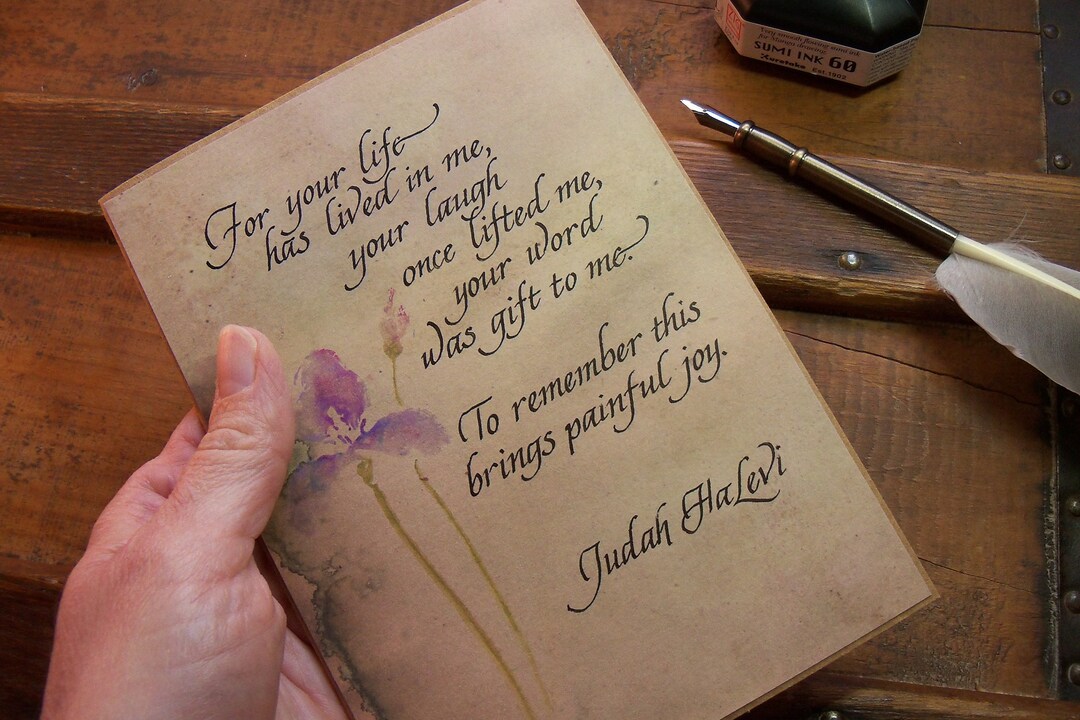 Very smooth flowing sumi ink
for human drawing
SUMI INK 60
Kuretake Est.1902
For your life
has lived in me,
your laugh
once lifted me,
your word
was gift to me.
To remember this
brings painful joy.
Judah HaLevi